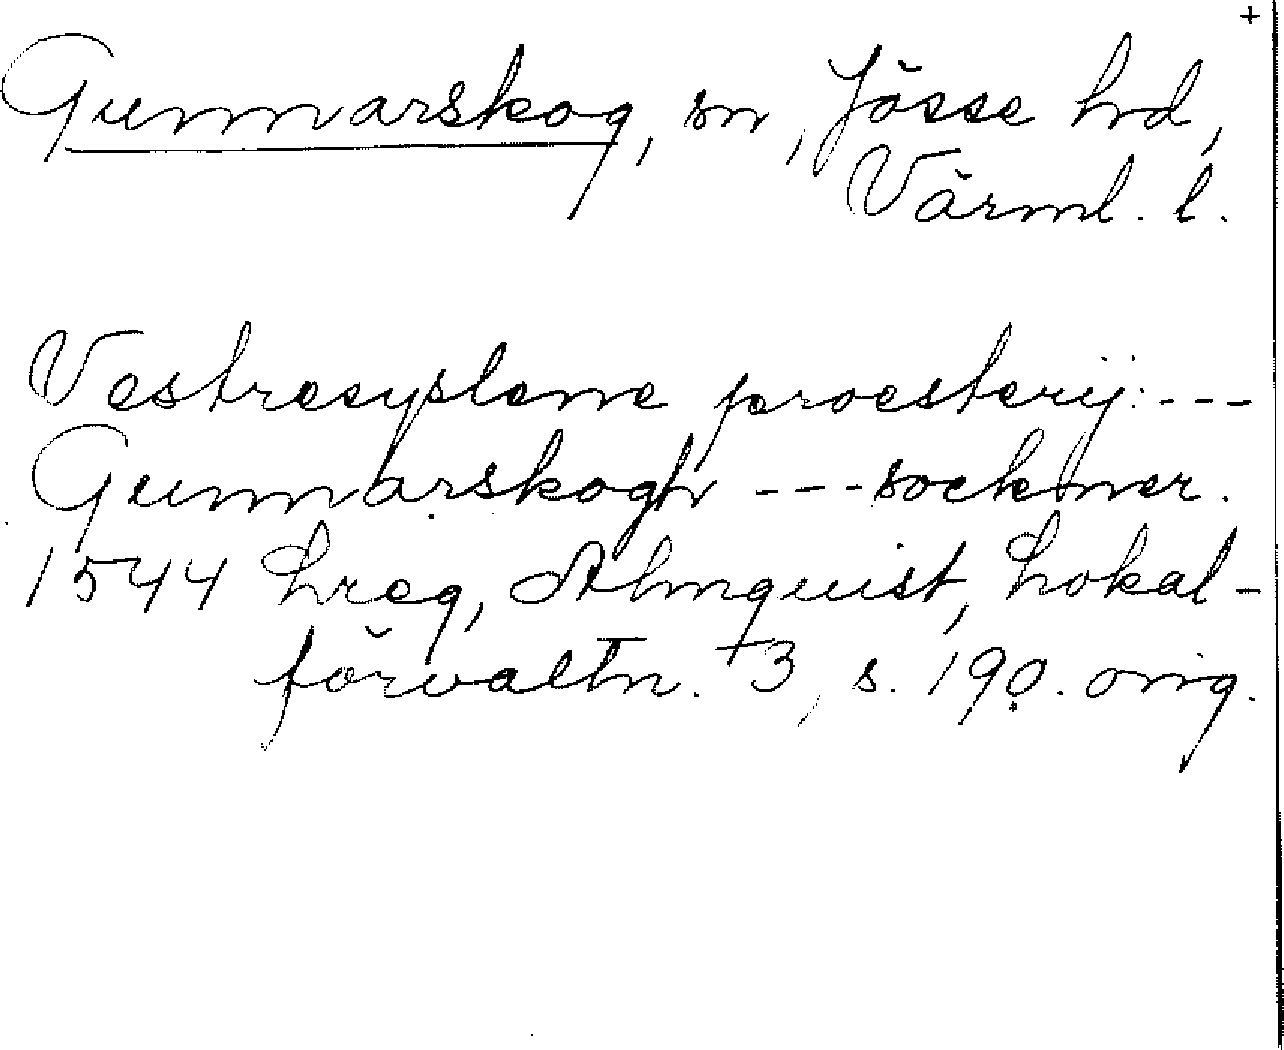 +
Gunnarskog, sn, Jösse hd,
Värml. l.
Vestresyslene proesterij: ---
Gunnarskogh --- sockner.
1544 Lreg, Almquist, Lokal-
förvaltn. +3, s. 190. orig.